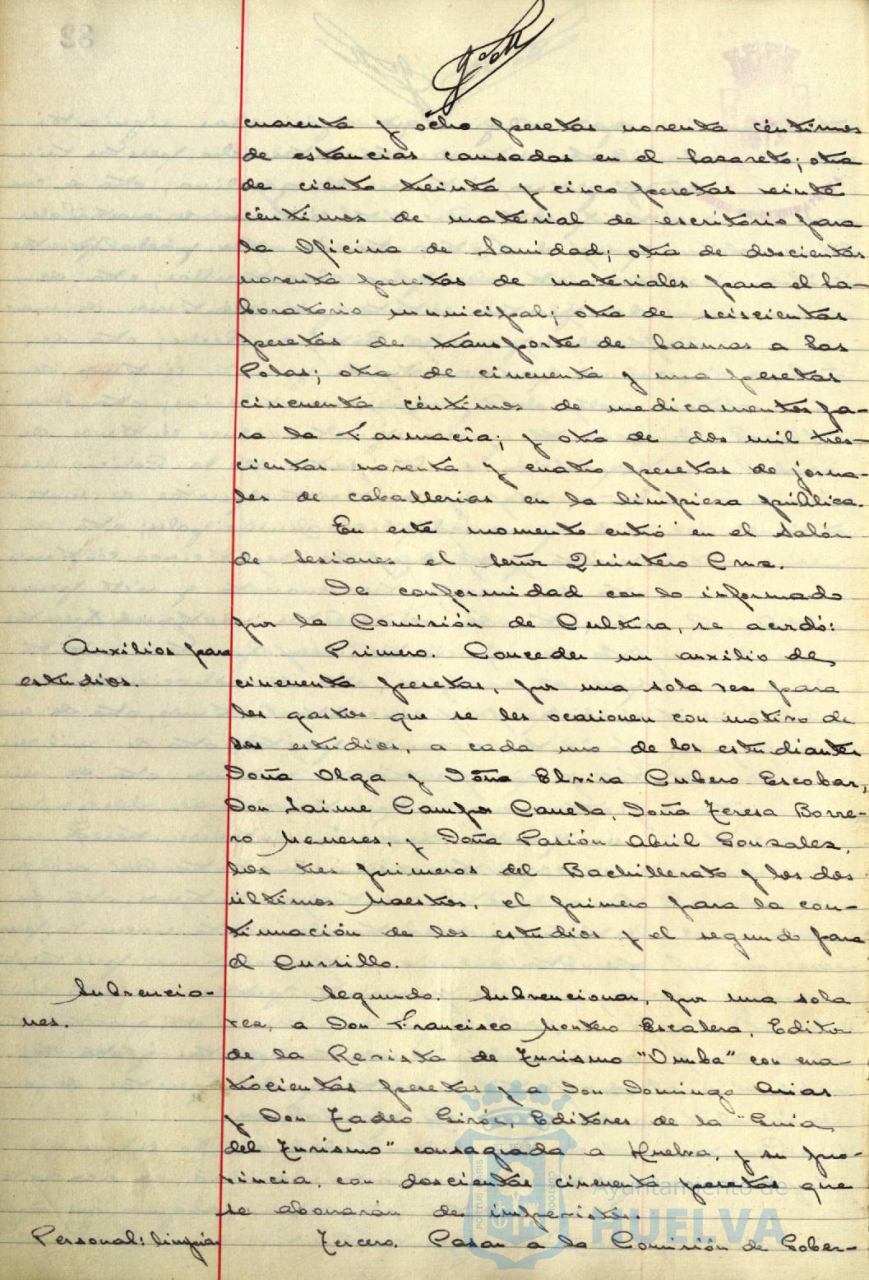 cuarenta y ocho pesetas noventa céntimos
de estancias causadas en el Lazareto; otra
de ciento treinta y cinco pesetas veinte
céntimos de material de escritorio para
la Oficina de Sanidad; otra de doscientas
noventa pesetas de materiales para el La-
boratorio municipal; otra de seiscientas
pesetas de transporte de basuras a las
otra de cincuenta y una pesetas
cincuenta céntimos de medicamentos pa-
ra la Farmacia; y otra de dos mil tres-
cientas noventa y cuatro pesetas de jorna-
les de caballerias en la limpieza pública.
En este momento entró en el Salón
de Sesiones el señor Quintero Cruz.
De conformidad con lo informado
por la Comisión de Cultura, se acordó:
Auxilios para
estudios.
Primero. Conceder un auxilio de
cincuenta pesetas, por una sola vez para
los gastos que se les ocasionen con motivo de
los estudios, a cada uno de los estudiantes
Doña Olga y Doña Elvira Cubero Escobar,
Don Jaime Campos Canela, Doña Teresa Borre-
ro Meneses, y Doña Pasión Abril Gonzalez,
los tres primeros del Bachillerato y los dos
últimos Maestros, el primero para la con-
tinuación de los estudios y el segundo para
el Cursillo.
Subvencio-
nes.
Segundo. Subvencionar, por una sola
vez, a Don Francisco Montero Escalera, Editor
de la Revista de Turismo "Onuba" con cua-
trocientas pesetas y a Don Domingo Arias
y Don Tadeo Girón, Editores de la "Guia
del Turismo" consagrada a Huelva, y su pro-
vincia, con doscientas cincuenta pesetas que
se abonarán de imprevistos.
Personal: limpia
Tercero. Pasar a la Comisión de Gober-
Ayuntamiento de
HUELVA